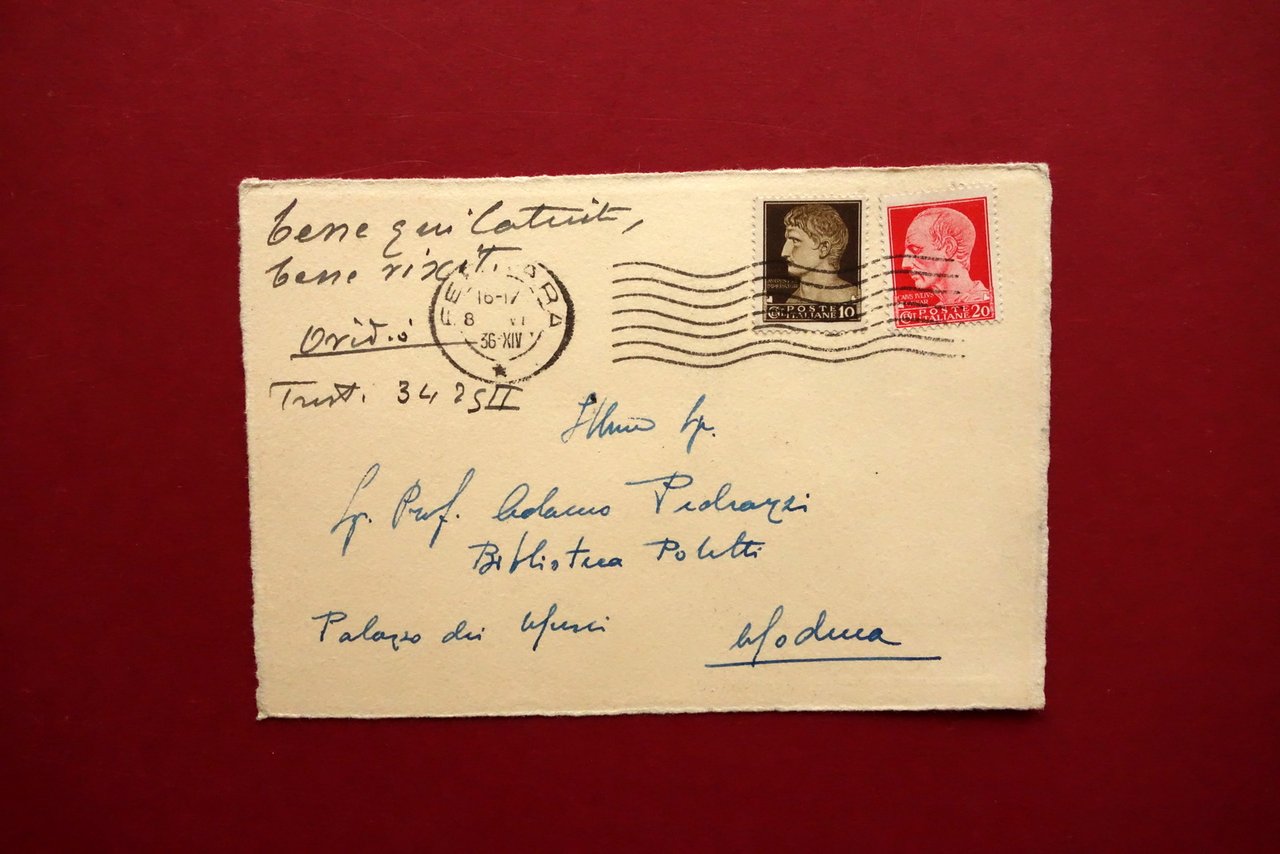 bene qui latuit,
bene vixit.
Ovidio
Trist. 34 25 II
FERRARA
16-17
8 VI
36-XIV
POSTE
ITALIANE 10
CAIVS IVLIVS
POSTE
ITALIANE 20
Ill.mo Sg.
Sg. Prof. Adamo Pedrazzi
Biblioteca Poletti
Palazzo dei Musei
Modena